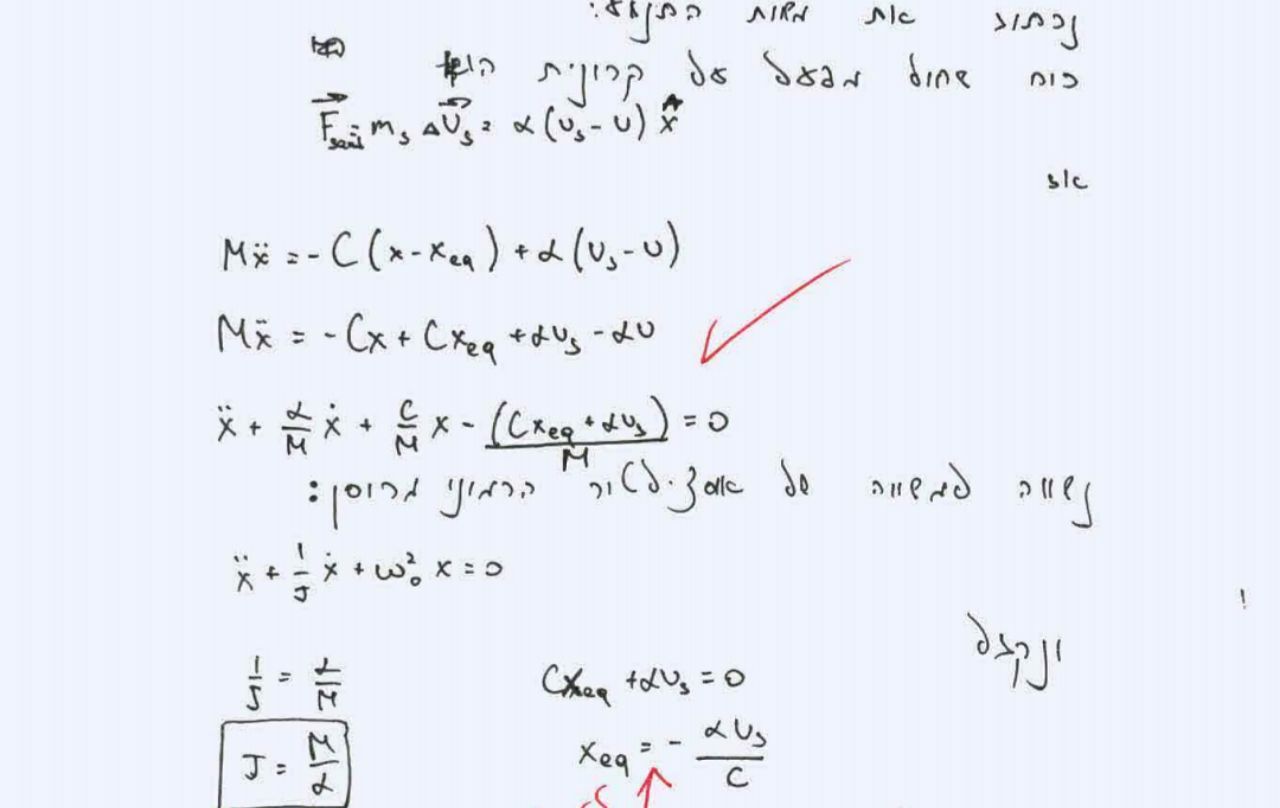 נכתוב את משוואת התנועה:
כוח שהחול מפעיל על קרונית הוא
F⃗_sand = m_s ΔU⃗_s = α(υ_s - υ) x̂
אז
Mẍ = -C(x - x_eq) + α(υ_s - υ)
Mẍ = -Cx + Cx_eq + αυ_s - αυ
ẍ + α/M ẋ + C/M x - (Cx_eq + αυ_s)/M = 0
נשווה למשוואה של אוסצילטור הרמוני מרוסן:
ẍ + 1/τ ẋ + ω₀² x = 0
ונקבל
1/τ = α/M
Cx_eq + αυ_s = 0
τ = M/α
x_eq = - αυ_s/C